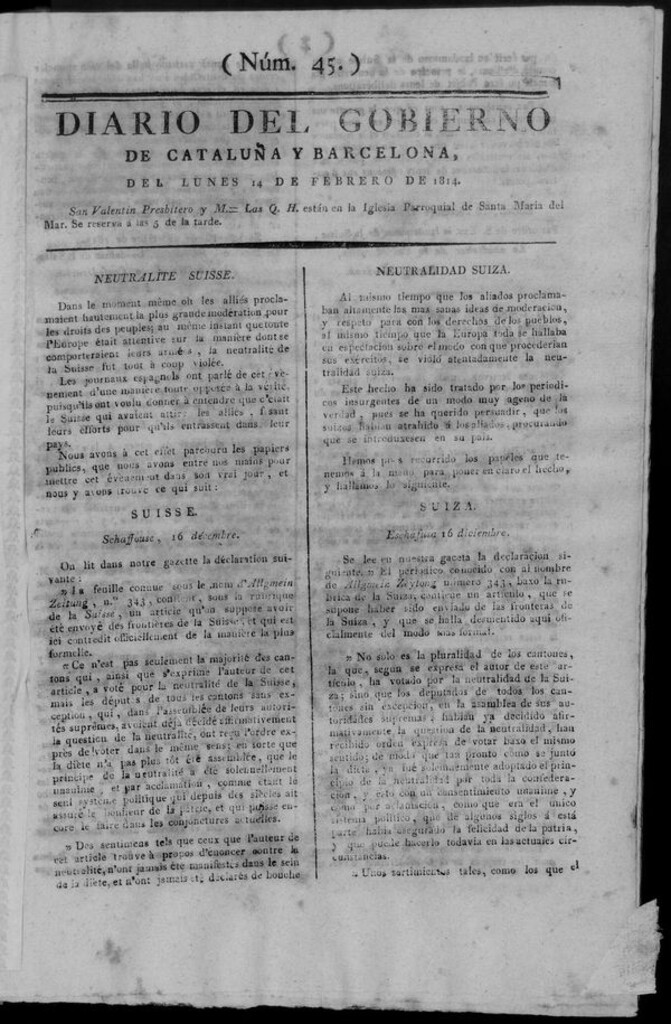 ( Núm. 45. )
DIARIO DEL GOBIERNO
DE CATALUÑA Y BARCELONA,
DEL LUNES 14 DE FEBRERO DE 1814.
San Valentin Presbitero y M.= Las Q. H. están en la Iglesia Parroquial de Santa Maria del
Mar. Se reserva á las 5 de la tarde.
NEUTRALITE SUISSE.
Dans le moment même où les alliés procla-
maient hautement la plus grande modération pour
les droits des peuples; au même instant que toute
l'Europe était attentive sur la manière dont se
comporteraient leurs armées, la neutralité de
la Suisse fut tout à coup violée.
Les journaux espagnols ont parlé de cet évè-
nement d'une manière toute opposée à la vérité,
puisqu'ils ont voulu donner à entendre que c'était
le Suisse qui avaient attiré les alliés, fesant
leurs efforts pour qu'ils entrassent dans leur
pays.
Nous avons à cet effet parcouru les papiers
publics, que nous avons entre nos mains pour
mettre cet évènement dans son vrai jour, et
nous y avons trouvé ce qui suit:
SUISSE.
Schaffouse, 16 décembre.
On lit dans notre gazette la déclaration sui-
vante:
"La feuille connue sous le nom d'Allgmein
Zeitung, n.º 343, contient, sous la rubrique
de la Suisse, un article qu'on suppose avoir
été envoyé des frontières de la Suisse, et qui est
ici contredit officiellement de la manière la plus
formelle.
"Ce n'est pas seulement la majorité des can-
tons qui, ainsi que s'exprime l'auteur de cet
article, a voté pour la neutralité de la Suisse,
mais les députés de tous les cantons sans ex-
ception, qui, dans l'assemblée de leurs autori-
tés suprêmes, avoient déjà décidé affirmativement
la question de la neutralité, ont reçu l'ordre ex-
près de voter dans le même sens; en sorte que
la diète n'a pas plus tôt été assemblée, que le
principe de la neutralité a été solennellement
unanime, et par acclamation, comme étant le
seul système politique qui depuis des siècles ait
assuré le bonheur de la patrie, et qui puisse en-
core le faire dans les conjonctures actuelles.
"Des sentimens tels que ceux que l'auteur de
cet article trouve à propos d'énoncer contre la
neutralité, n'ont jamais été manifestés dans le sein
de la diète, et n'ont jamais été déclarés de bouche
NEUTRALIDAD SUIZA.
Al mismo tiempo que los aliados proclama-
ban altamente las mas sanas ideas de moderacion,
y respeto para con los derechos de los pueblos,
al mismo tiempo que la Europa toda se hallaba
en espectacion sobre el modo con que procederian
sus exércitos, se violó atentadamente la neu-
tralidad suiza.
Este hecho ha sido tratado por los periodicos
insurgentes de un modo muy ageno de la
verdad, pues se ha querido persuadir, que los
suizos habian atrahido á los aliados, procurando
que se introduxesen en su pais.
Hemos pues recurrido los papeles que te-
nemos á la mano para poner en claro el hecho,
y hallamos lo siguiente.
SUIZA.
Eschafusa 16 diciembre.
Se lee en nuestra gaceta la declaracion si-
guiente. "El periódico conocido con el nombre
de Allgmein Zeytong número 343, baxo la ru-
brica de la Suiza, contiene un articulo, que se
supone haber sido enviado de las fronteras de
la Suiza, y que se halla desmentido aqui ofi-
cialmente del modo mas formal.
"No solo es la pluralidad de los cantones,
la que, segun se expresa el autor de este ar-
tículo, ha votado por la neutralidad de la Sui-
za; sino que los deputados de todos los can-
tones sin excepcion, en la asamblea de sus au-
toridades supremas, habian ya decidido afir-
mativamente la question de la neutralidad, han
recibido orden expresa de votar baxo el mismo
sentido; de modo que tan pronto como se juntó
la dieta, ya fué solemnemente adoptado el prin-
cipio de la neutralidad por toda la confedera-
cion, y esto con un consentimiento unanime, y
como por aclamacion, como que era el único
sistema político, que de algunos siglos á esta
parte habia asegurado la felicidad de la patria,
y que puede hacerlo todavia en las actuales cir-
cunstancias.
"Unos sentimientos tales, como los que el